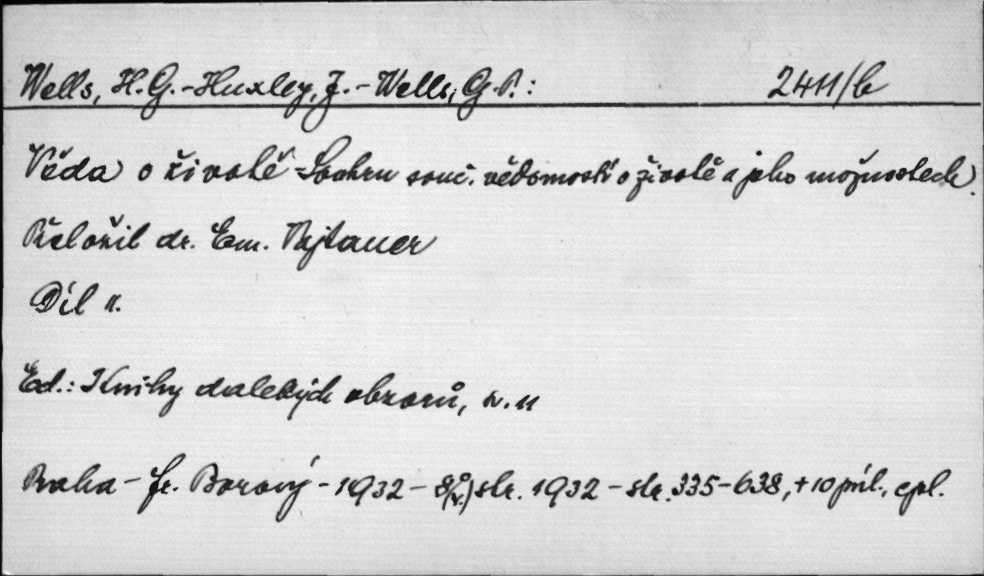 Wells, H.G.-Huxley, J.-Wells, G.P.: 2411/b
Věda o životě - Souhrn souč. vědomostí o životě a jeho možnostech.
Přeložil dr. Em. Rejtauer
Díl II.
Ed.: Knihy dalekých obzorů, sv. 11
Praha - Fr. Borový - 1932 - 8°(v.) str. 1932 - str. 335-638, + 10 příl., cpl.